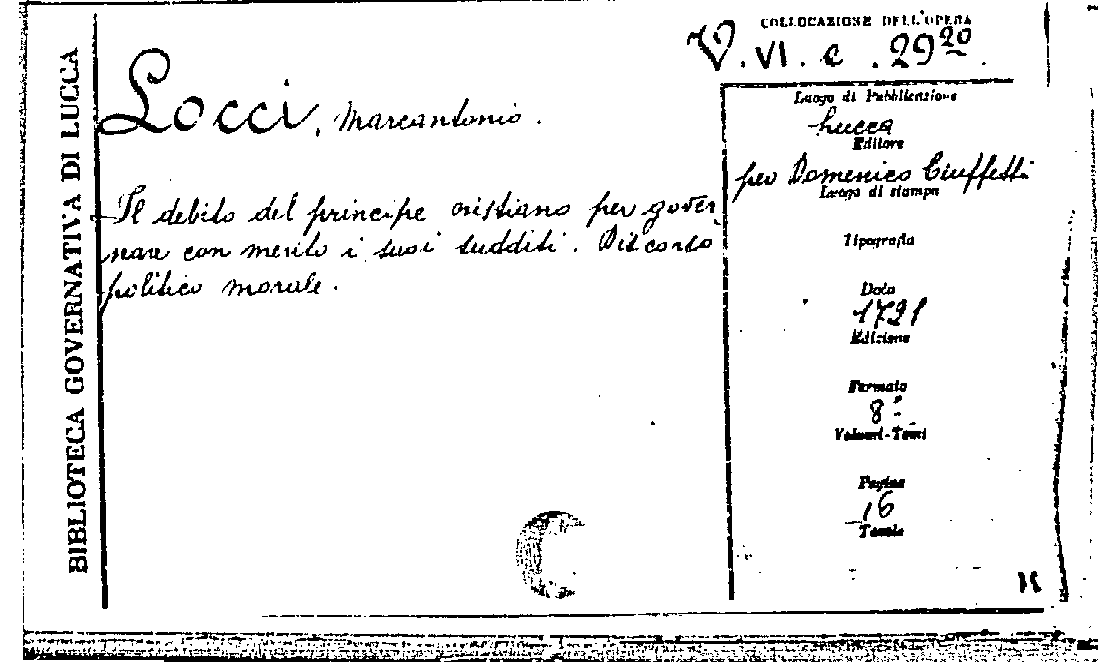 BIBLIOTECA GOVERNATIVA DI LUCCA
COLLOCAZIONE DELL'OPERA
V. VI. c. 29 20
Locci, Marcantonio.
Il debito del principe cristiano per gover
nare con merito i suoi sudditi. Discorso
politico morale.
Luogo di Pubblicazione
Lucca
Editore
per Domenico Ciuffetti
Luogo di stampa
Tipografia
Data
1721
Edizione
Formato
8º
Volumi-Tomi
Pagine
16
Tavole